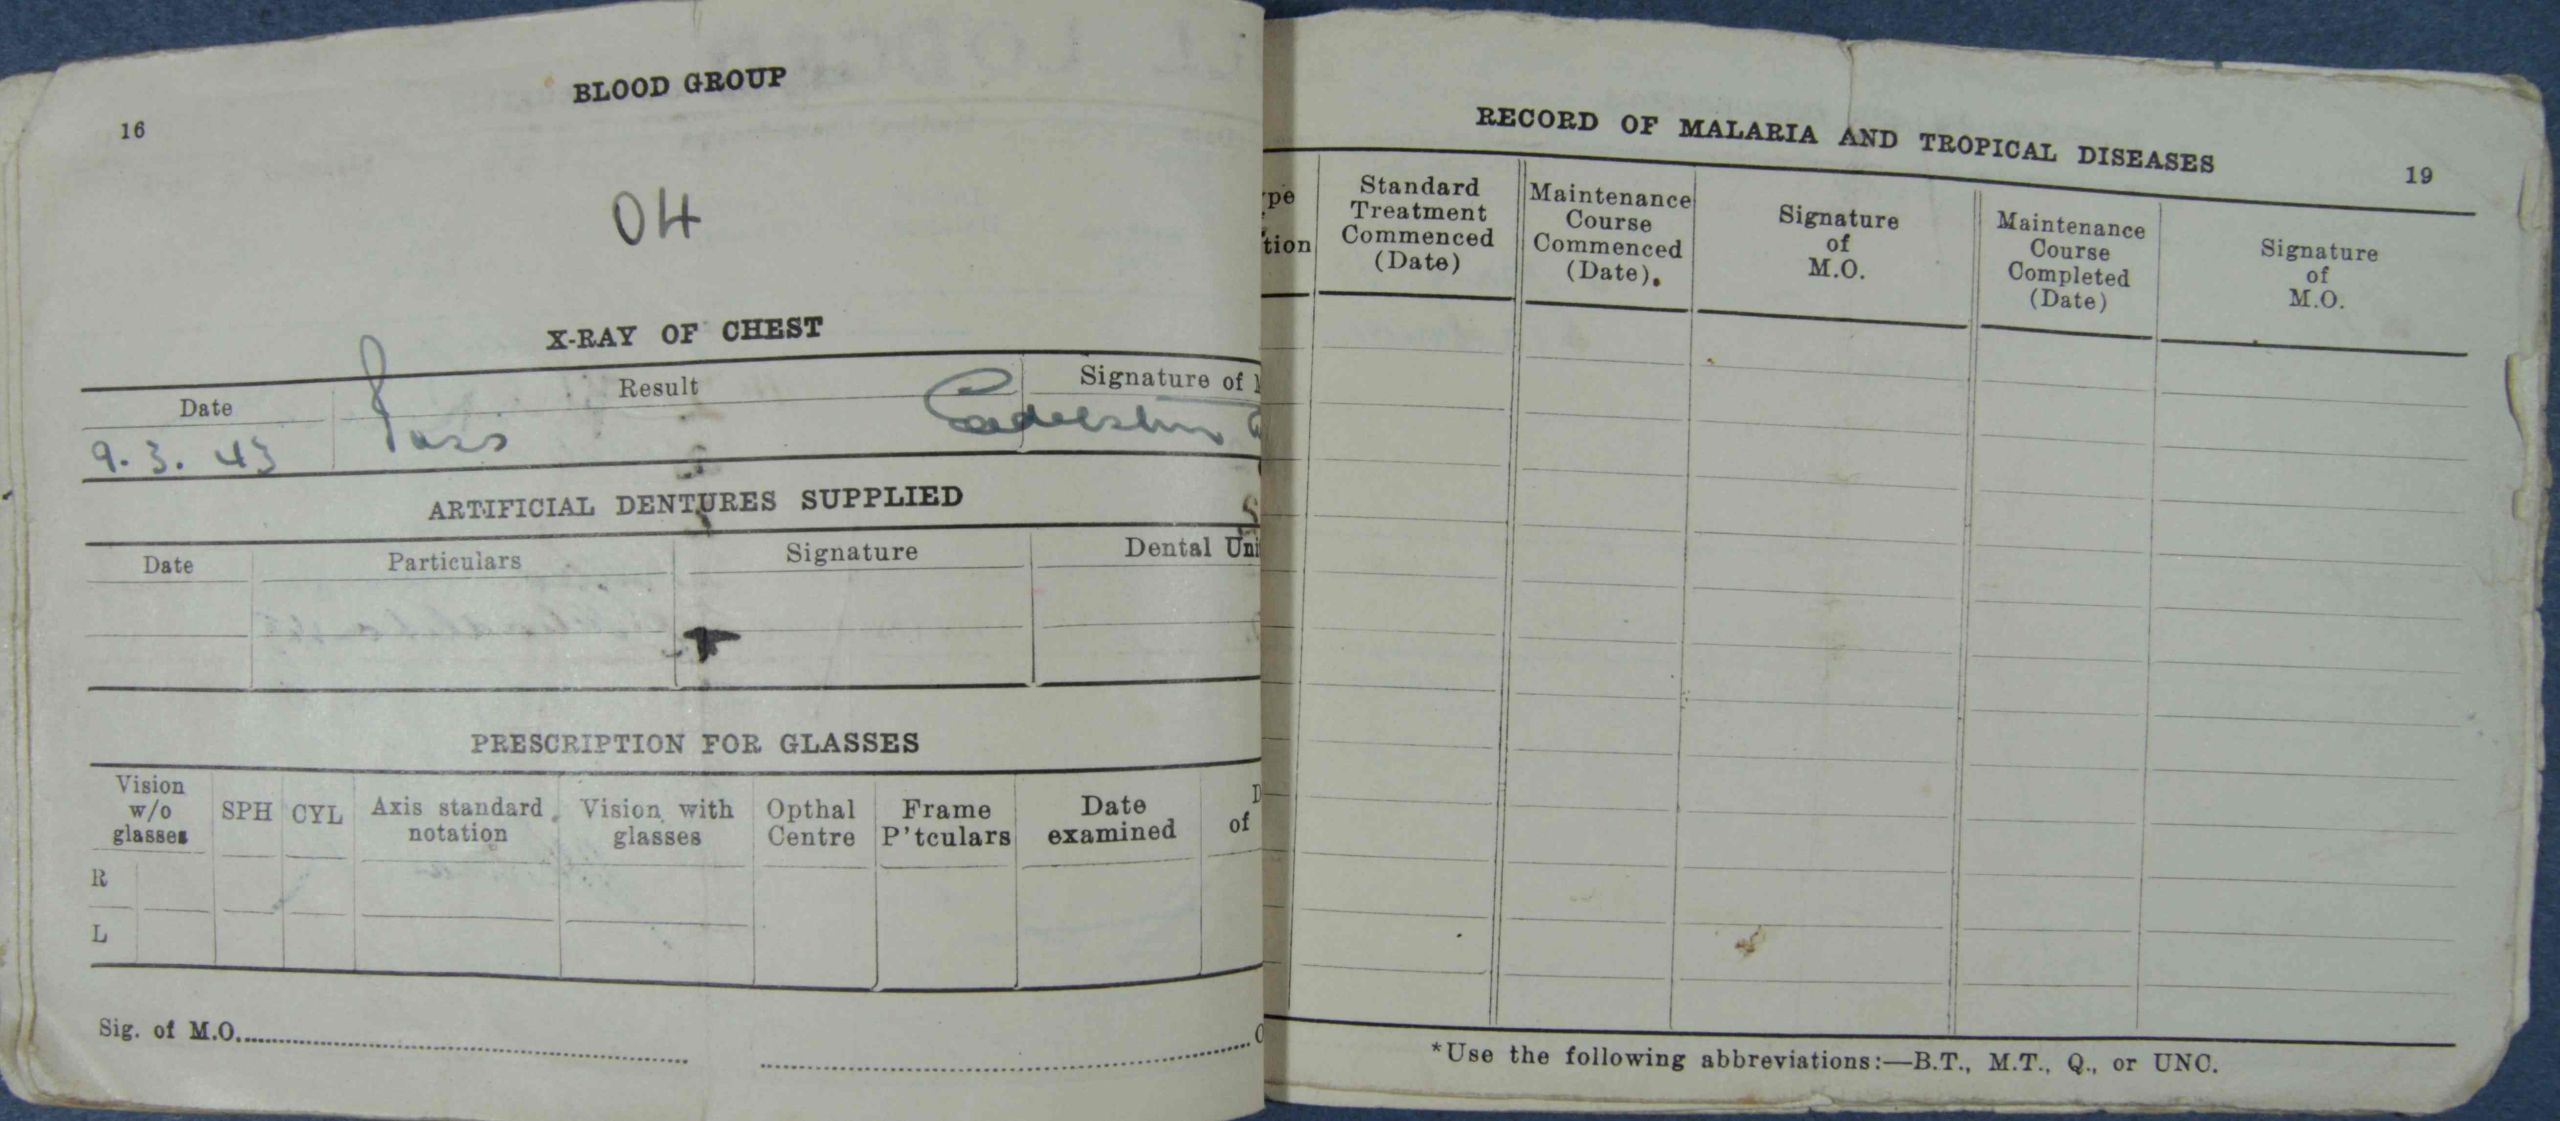 16
BLOOD GROUP
04
X-RAY OF CHEST
Date Result Signature of
9.3.43 Pass
ARTIFICIAL DENTURES SUPPLIED
Date Particulars Signature Dental Uni
PRESCRIPTION FOR GLASSES
Vision w/o glasses SPH CYL Axis standard notation Vision with glasses Opthal Centre Frame P'tculars Date examined of
R
L
Sig. of M.O.
RECORD OF MALARIA AND TROPICAL DISEASES
19
ype
tion
Standard
Treatment
Commenced
(Date)
Maintenance
Course
Commenced
(Date).
Signature
of
M.O.
Maintenance
Course
Completed
(Date)
Signature
of
M.O.
*Use the following abbreviations:—B.T., M.T., Q., or UNC.